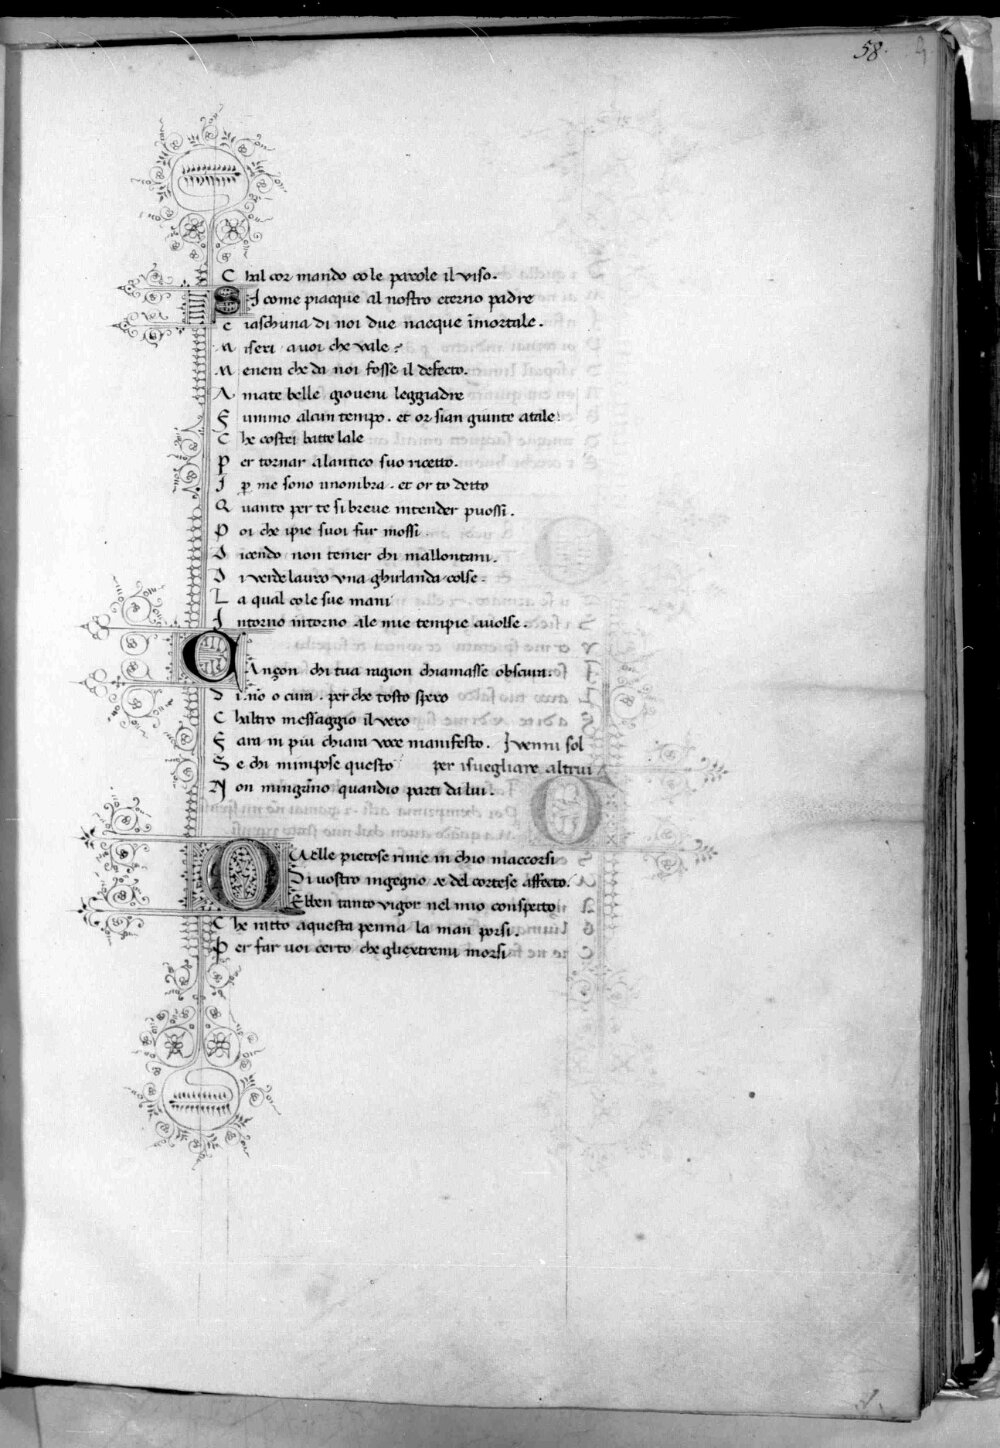 58.
C hal cor mando co le parole il viso.
SI come piacque al nostro eterno padre
C iaschuna di noi due nacque īmortale.
M iseri a uoi che vale?
M eneni che da noi fosse il defecto.
A mate belle gioueni leggiadre
F ummo alcun tempo. et or sian giunte atale:
C he costei batte lale
P er tornar alantico suo ricetto.
I ꝑ me sono unombra. et or to detto
Q uanto per te si breue intender puossi.
P oi che ipie suoi fur mossi
D icendo non temer chi mallontani.
D i verde lauro vna ghirlanda colse.
L a qual co le sue mani
I ntorno intorno ale mie tempie auolse.
CAnçon chi tua ragion chiamasse obscura.
D i. nō o cura. per che tosto spero
C haltro messaggio il vero
F ara in piu chiara voce manifesto. I venni sol
S e chi mimpose questo per isuegliare altrui
N on mingānno quandio parti da lui.
QUelle pietose rime in chio maccorsi
Di uostro ingegno & del cortese affecto.
Ebben tanto vigor nel mio conspetto
C he ratto aquesta penna la man porsi.
P er far uoi certo che gliextremi morsi